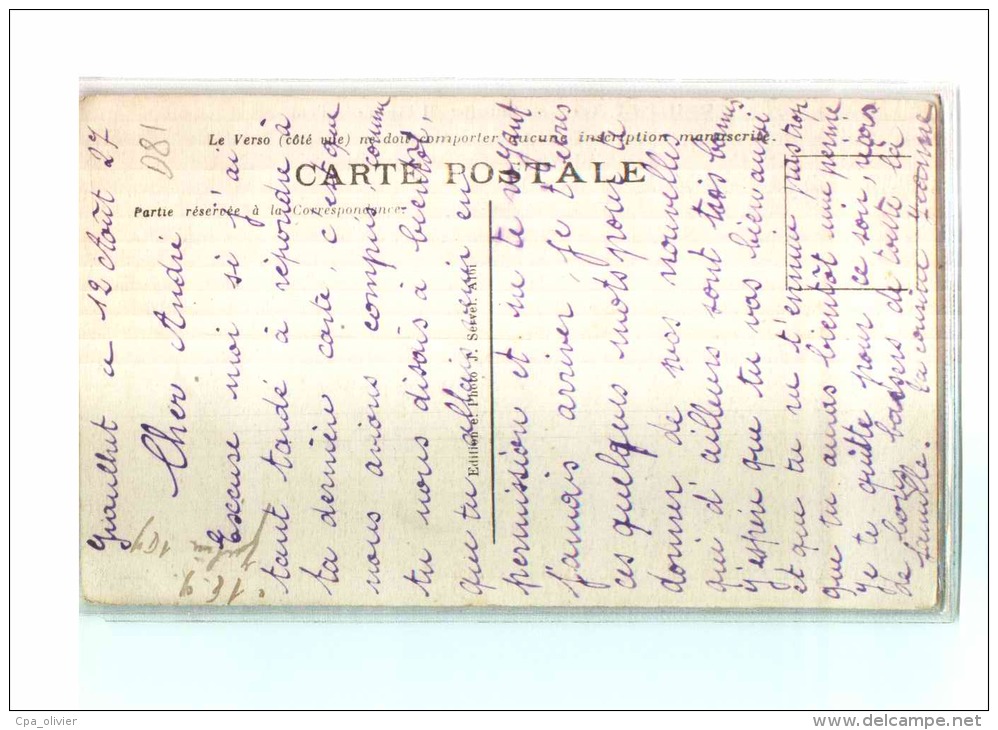 Graulhet le 12 Août 27
Cher André
Escuse moi si j'ai
tant tardé à répondre à
ta dernière carte, c'est que
nous avions compri comme
tu nous disais à bientôt,
que tu allais venir en
permission et ne te voyant
jamais arriver, je t'écris
ces quelques mots pour
donner de nos nouvelles
qui d'ailleurs sont tres bonnes
j'esper que tu vas bien aussi
et que tu ne t'ennuie pas trop
que tu auras bientôt une permi
je te quitte pour ce soir, reçois
de bons baisers de toute la
famille. ta cousine Jeanne
D81
Le Verso (côté vue) ne doit comporter aucune inscription manuscrite.
CARTE POSTALE
Partie réservée à la Correspondance.
Edition et Photo J. Servet. Albi
Cpa_olivier
www.delcampe.net